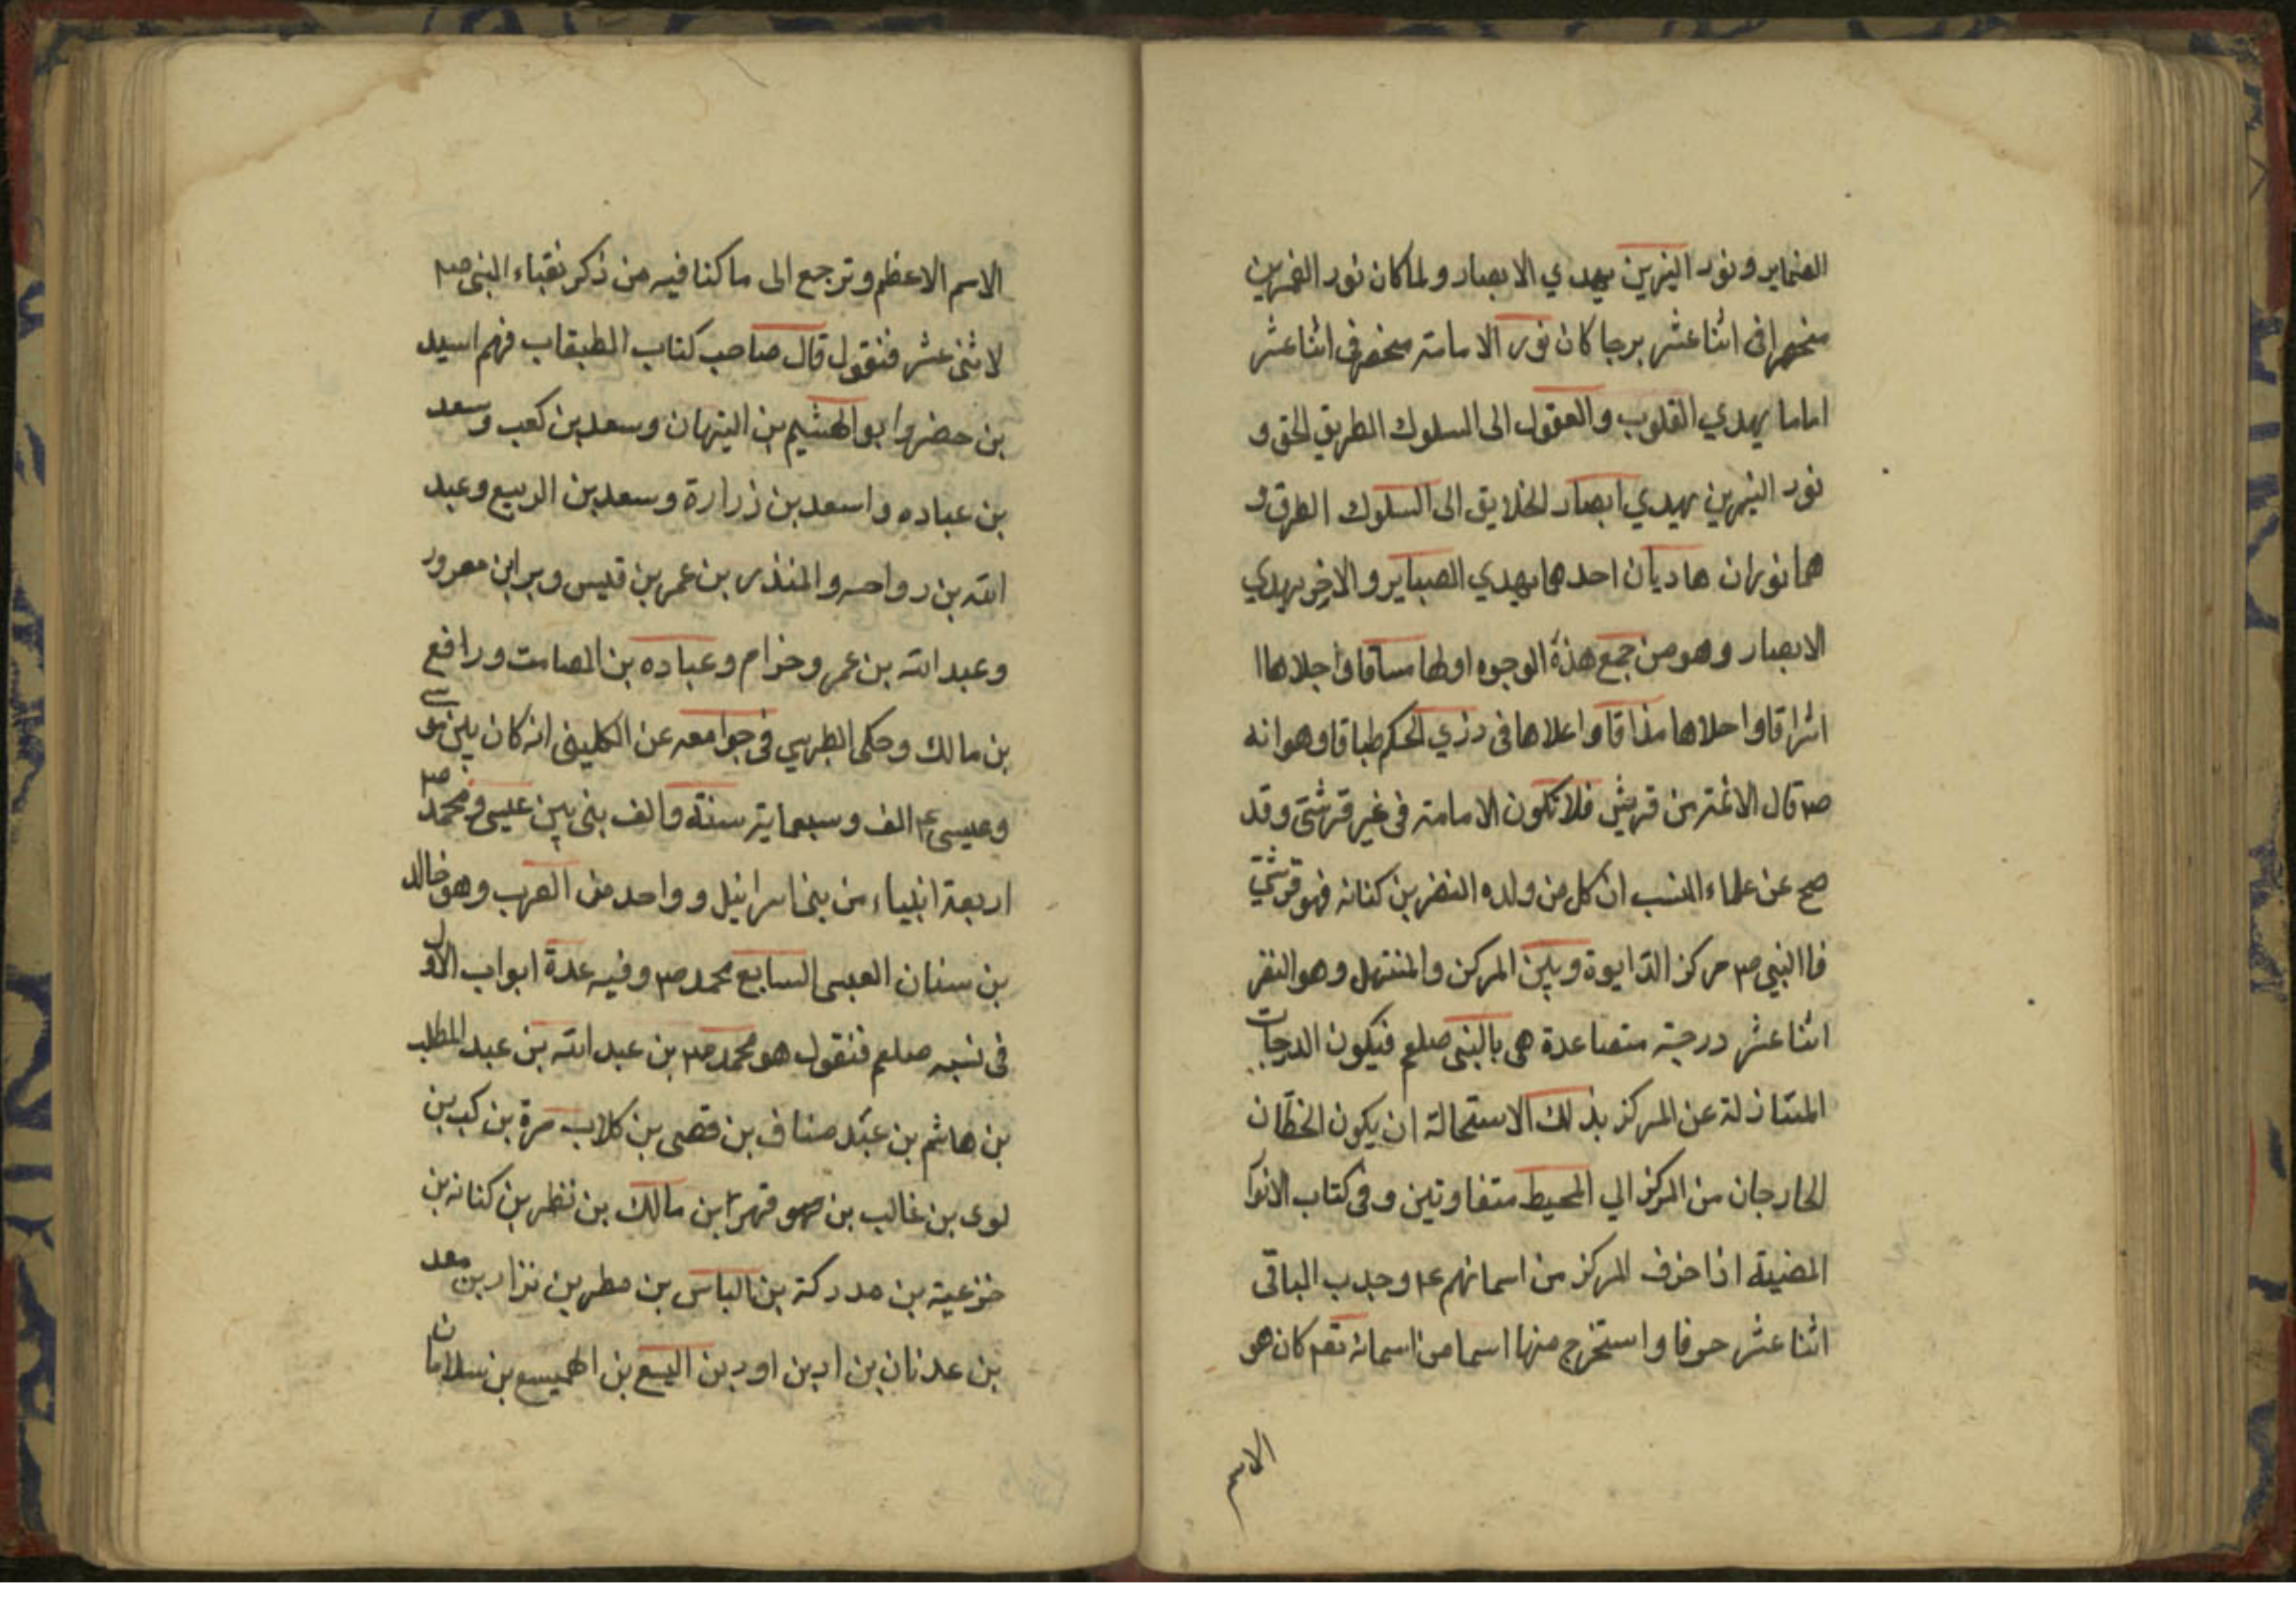 الضماير ونور النيرين يهدي الابصار ولما كان نور القمرين
منحصرا فى اثنا عشر برجا كان نور الامامة منحصرفى اثنا عشر
اماما يهدي القلوب والعقول الى السلوك الطريق الحق و
نور النيرين يهدي ابصار الخلايق الى السلوك الطرق و
هما نوران هاديان احدهما يهدي البصاير والاخر يهدي
الابصار وهو من جمع هذه الوجوه اولها مساقا واجلاها
اشراقا واحلاها مذاقا واعلاها فى دزي الحكم طباقا وهو انه
صم قال الائمة من قريش فلا تكون الامامة فى غير قرشى وقد
صح عن علماء النسب ان كل من ولده النضر بن كنانه فهو قرشي
فاالنبي صم مركز الدايوة وبين المركز والمنتهى وهو النضر
اثنا عشر درجة متصاعدة هى بالنبى صلعم فيكون الدرجات
المتنازلة عن المركز بذلك الاستحالة ان يكون الخطان
الخارجان من المركز الي المحيط متفاوتين وفى كتاب الانوا
المضيئة اذا حذف المركز من اسمائهم عم وجدب الباقى
اثنا عشر حرفا واستخرج منها اسما من اسمائه تعم كان هو
الاسم
الاسم الاعظم وترجع الى ما كنا فيه من ذكر نقباء النبى صم
لاثنى عشر فنقول قال صاحب كتاب الطبقاب فهم اسيد
بن حضر وابو الهشيم بن التيهان وسعد بن كعب وسعد
بن عباده واسعد بن زرارة وسعد بن الربيع وعبد
الله بن رواحه والمنذر بن عمر بن قيس وبرابن معرور
وعبد الله بن عمر وحزام وعباده بن الصامت ورافع
بن مالك وحكى الطبرسي فى جوامعه عن الكلينى انه كان بين موسى
وعيسى عم الف وسبعماية سنة والف بنى بين عيسى ومحمد صم
اربعة انبياء من بنى اسرائيل وواحد من العرب وهو خالد
بن سنان العبسى السابع محمد صم وفيه عدة ابواب الاول
فى نسبه صلعم فنقول هو محمد صم بن عبد الله بن عبد المطلب
بن هاشم بن عبد مناف بن قصى بن كلاب مرة بن كب بن
لوى بن غالب بن فهر ابن مالك بن نظر بن كنانه بن
خزعية بن مدركة بن الباس بن مطر بن نزار بن معد
بن عدنان بن اد بن اود بن اليسع بن الهميسع بن سلامان